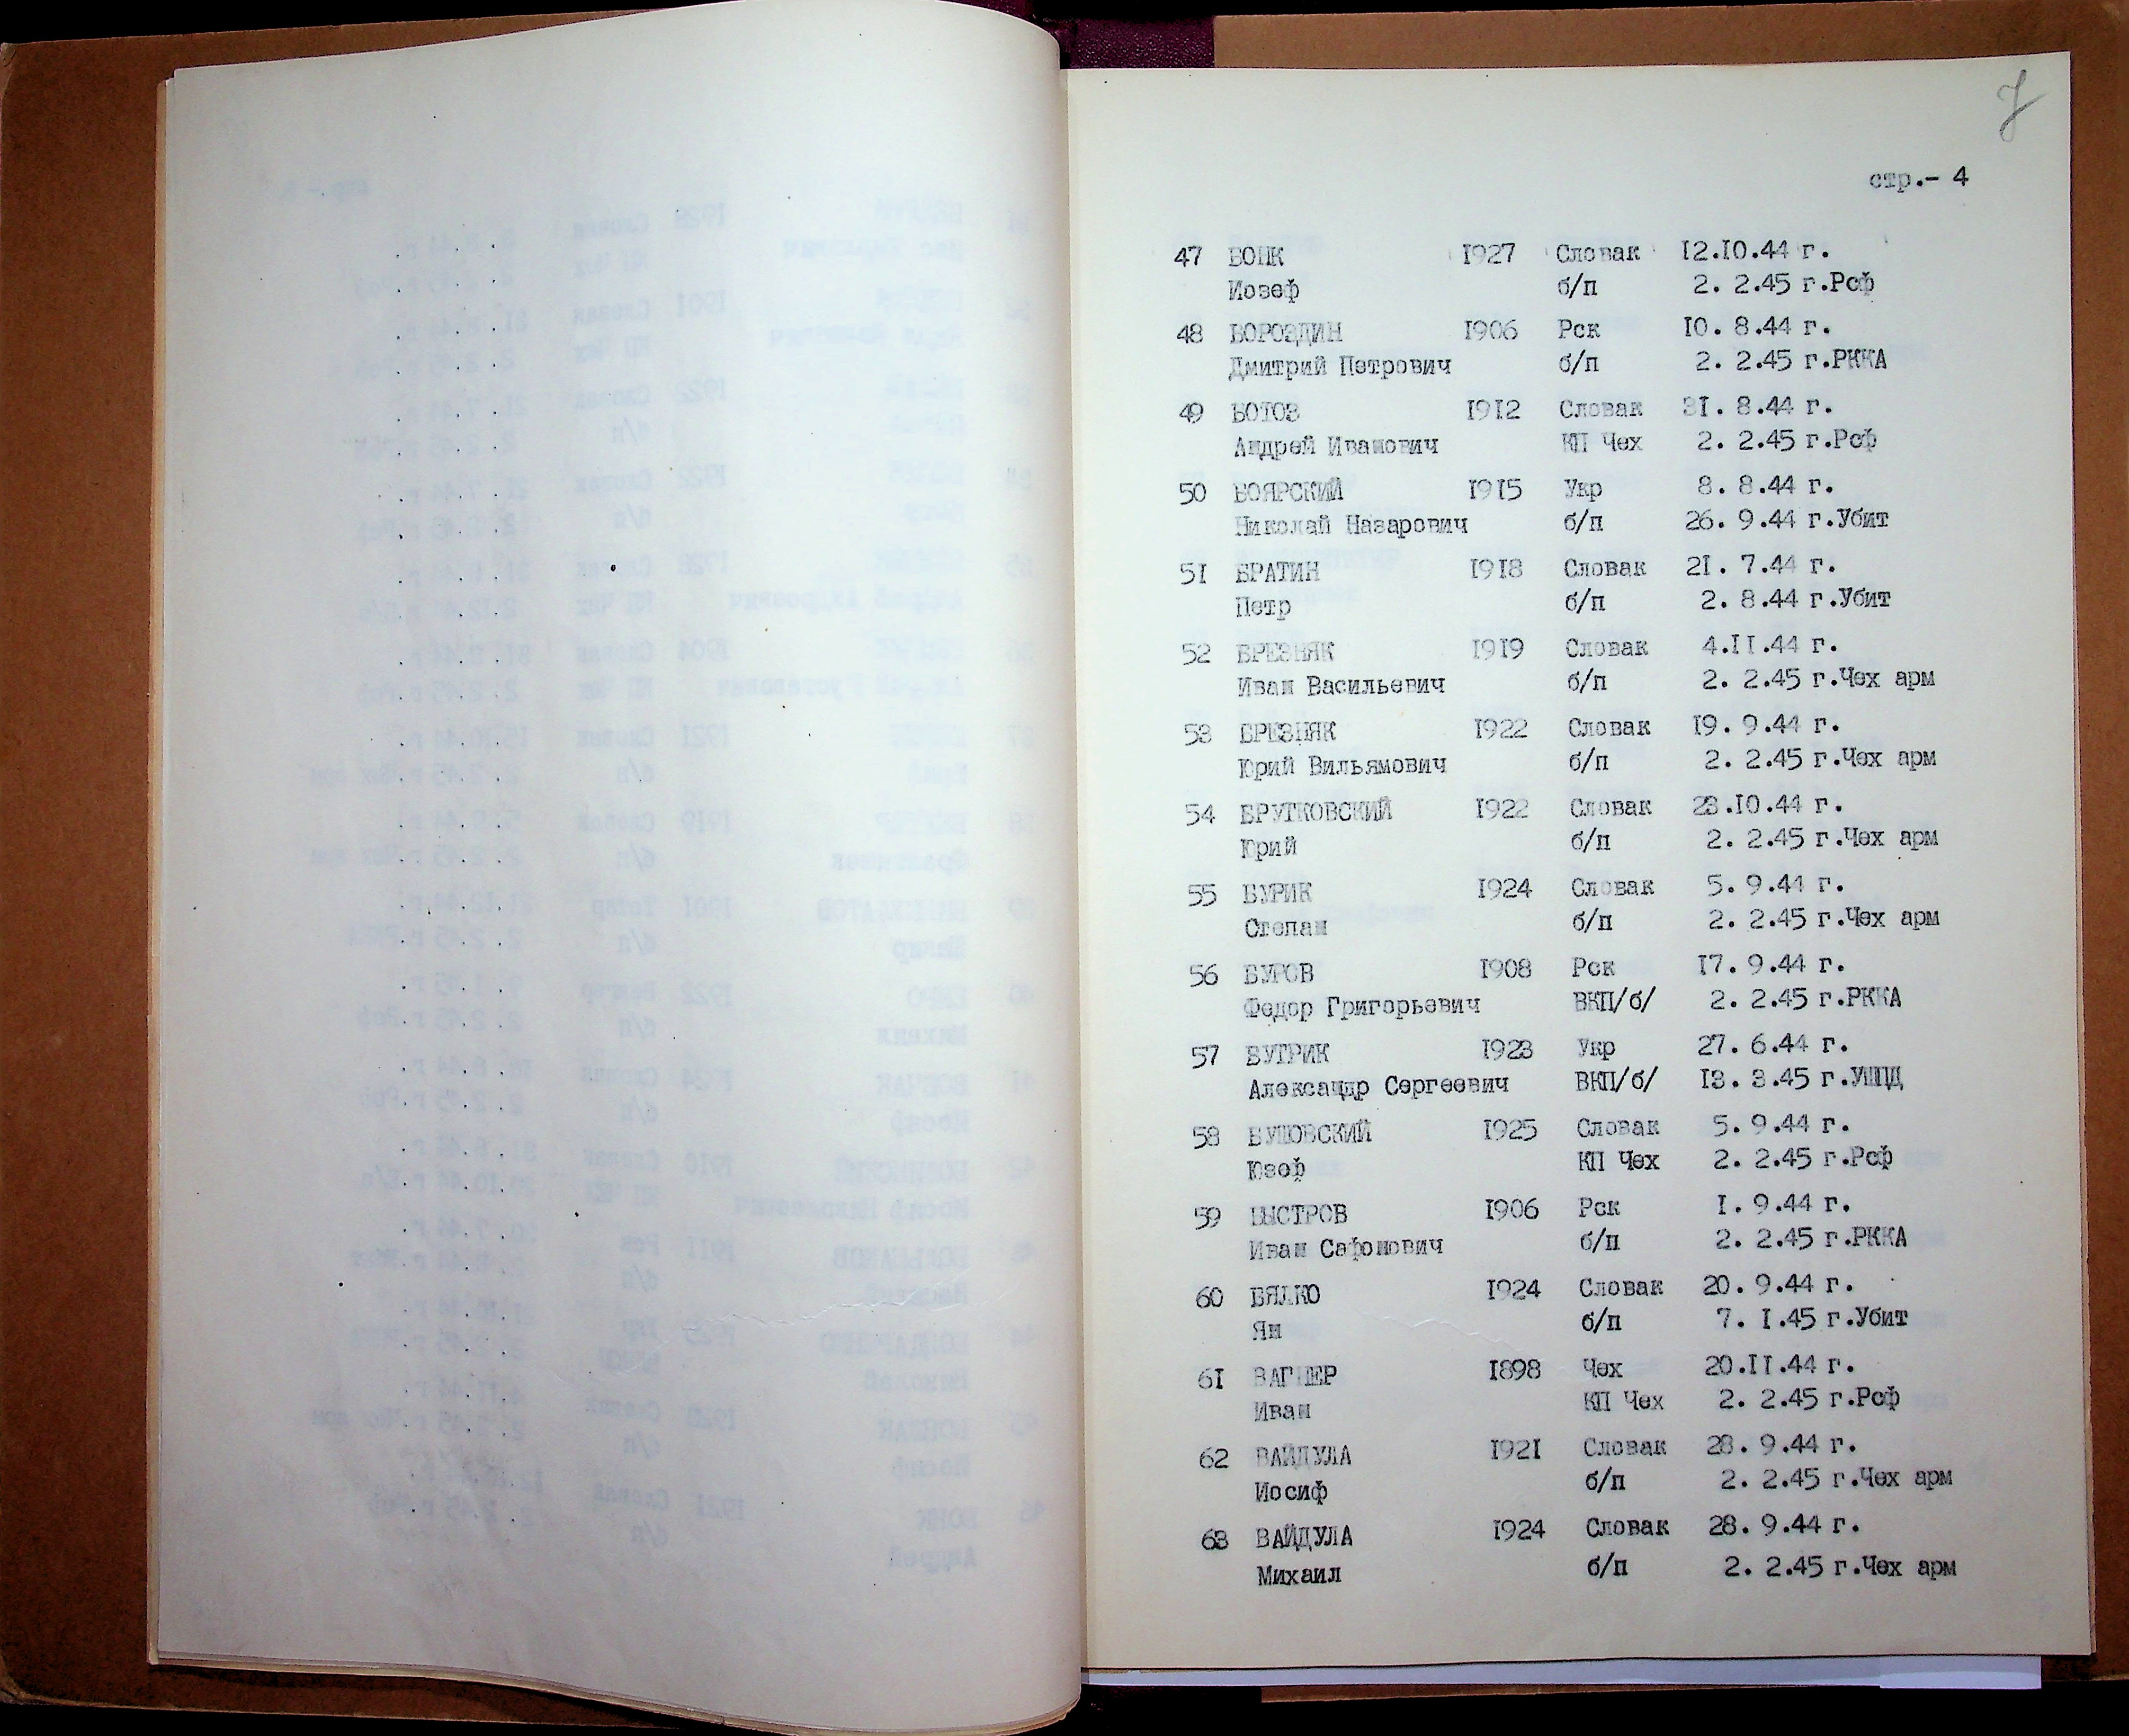 7
стр.- 4
47 БОЦК 1927 Словак 12.10.44 г.
Иозеф б/п 2. 2.45 г.Рсф
48 БОРОЗДИН 1906 Рск 10. 8.44 г.
Дмитрий Петрович б/п 2. 2.45 г.РККА
49 БОТОЗ 1912 Словак 31. 8.44 г.
Андрей Иванович КП Чех 2. 2.45 г.Рсф
50 БОЯРСКИЙ 1915 Укр 8. 8.44 г.
Николай Назарович б/п 26. 9.44 г.Убит
51 БРАТИН 1918 Словак 21. 7.44 г.
Петр б/п 2. 8.44 г.Убит
52 БРЕЗНЯК 1919 Словак 4.11.44 г.
Иван Васильевич б/п 2. 2.45 г.Чех арм
53 БРЕЗНЯК 1922 Словак 19. 9.44 г.
Юрий Вильямович б/п 2. 2.45 г.Чех арм
54 БРУТКОВСКИЙ 1922 Словак 23.10.44 г.
Юрий б/п 2. 2.45 г.Чех арм
55 БУРИК 1924 Словак 5. 9.44 г.
Степан б/п 2. 2.45 г.Чех арм
56 БУРОВ 1908 Рск 17. 9.44 г.
Федор Григорьевич ВКП/б/ 2. 2.45 г.РККА
57 БУТРИК 1923 Укр 27. 6.44 г.
Александр Сергеевич ВКП/б/ 13. 3.45 г.УШПД
58 БУШОВСКИЙ 1925 Словак 5. 9.44 г.
Юзеф КП Чех 2. 2.45 г.Рсф
59 БЫСТРОВ 1906 Рск 1. 9.44 г.
Иван Сафонович б/п 2. 2.45 г.РККА
60 БЯЛКО 1924 Словак 20. 9.44 г.
Ян б/п 7. 1.45 г.Убит
61 ВАГНЕР 1898 Чех 20.11.44 г.
Иван КП Чех 2. 2.45 г.Рсф
62 ВАЙДУЛА 1921 Словак 28. 9.44 г.
Иосиф б/п 2. 2.45 г.Чех арм
63 ВАЙДУЛА 1924 Словак 28. 9.44 г.
Михаил б/п 2. 2.45 г.Чех арм